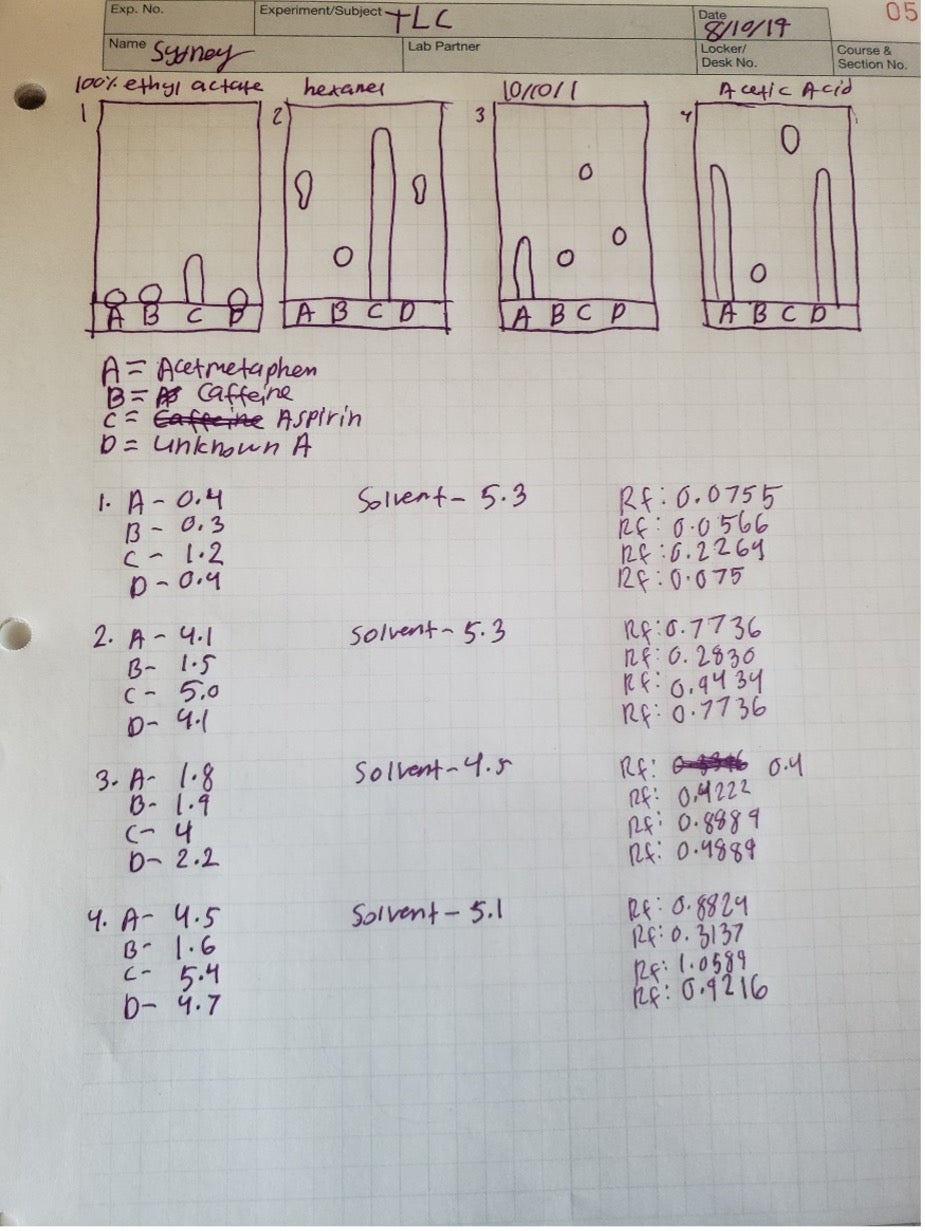 Exp. No. Experiment/Subject TLC Date 8/10/19 05
Name Sydney Lab Partner Locker/ Desk No. Course & Section No.
100% ethyl actate hexanes 10/10/1 Acetic Acid
1 2 3 4
A B C D A B C D A B C D A B C D
A = Acetmetaphen
B = Caffeine
C = Caffeine Aspirin
D = Unknown A
1. A - 0.4 Solvent - 5.3 Rf: 0.0755
B - 0.3 Rf: 0.0566
C - 1.2 Rf: 0.2264
D - 0.4 Rf: 0.075
2. A - 4.1 Solvent - 5.3 Rf: 0.7736
B - 1.5 Rf: 0.2830
C - 5.0 Rf: 0.9434
D - 4.1 Rf: 0.7736
3. A - 1.8 Solvent - 4.5 Rf: 0.4
B - 1.9 Rf: 0.4222
C - 4 Rf: 0.8889
D - 2.2 Rf: 0.4889
4. A - 4.5 Solvent - 5.1 Rf: 0.8824
B - 1.6 Rf: 0.3137
C - 5.4 Rf: 1.0589
D - 4.7 Rf: 0.9216